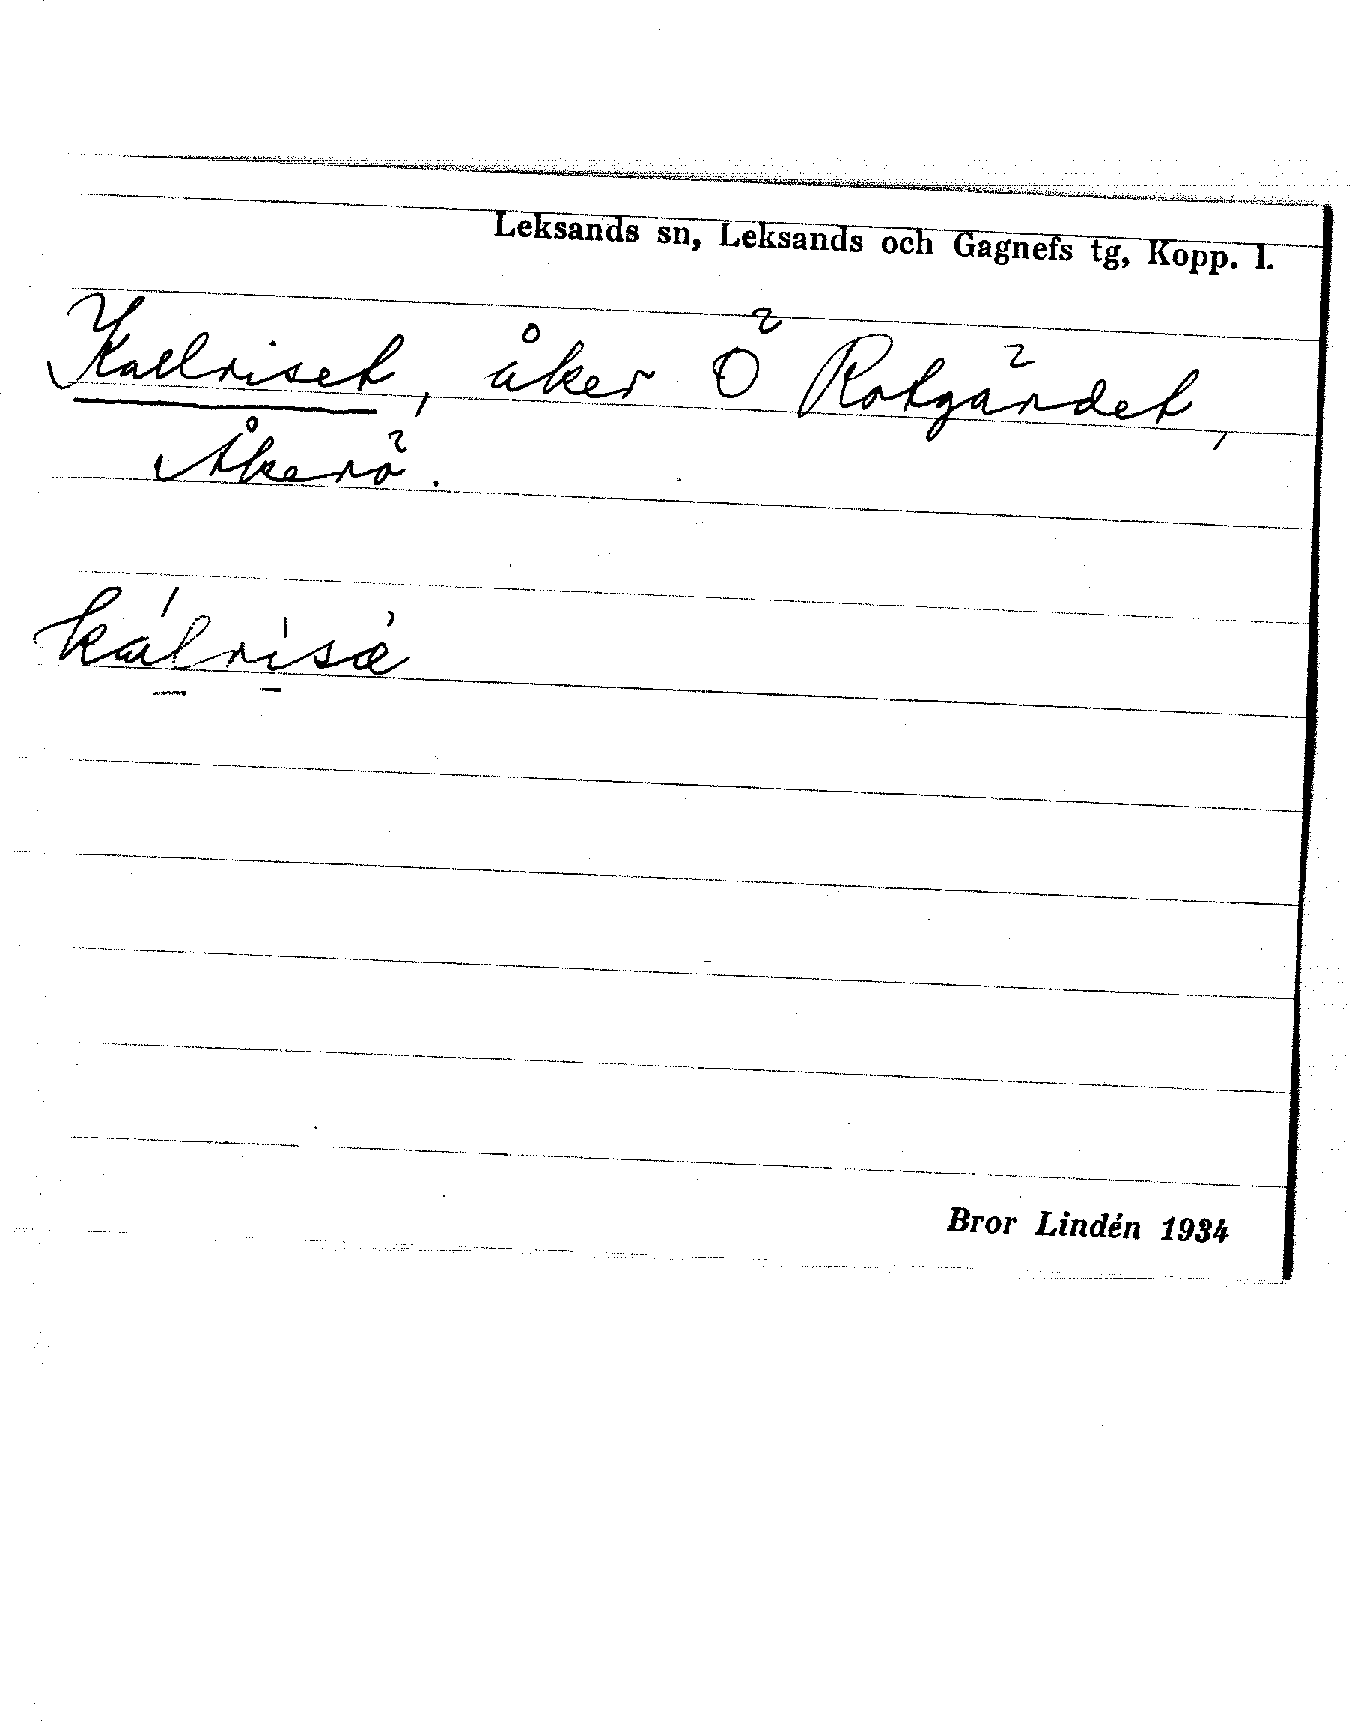 Leksands sn, Leksands och Gagnefs tg, Kopp. l.
Kallriset, åker Ö Rotgärdet,
Åkerö.
kálrisè
Bror Lindén 1934